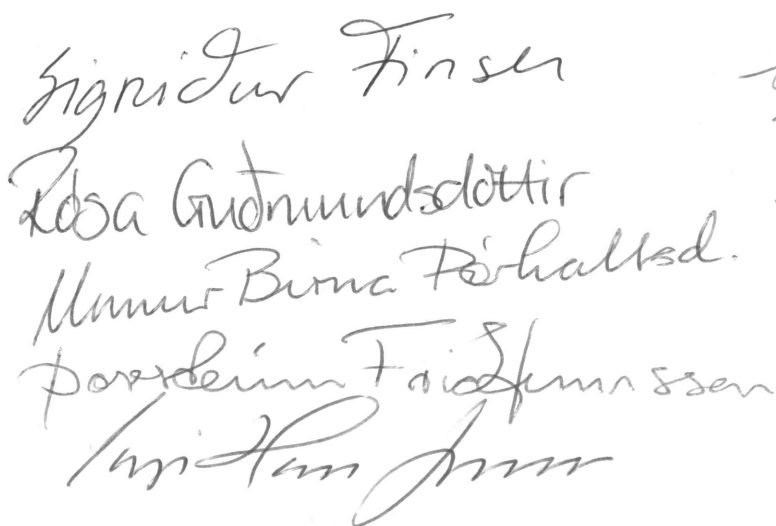 Sigríður Finsen
Rósa Guðmundsdóttir
Unnur Birna Þórhallsd.
Þorsteinn Friðfinnsson
Ingi Hans